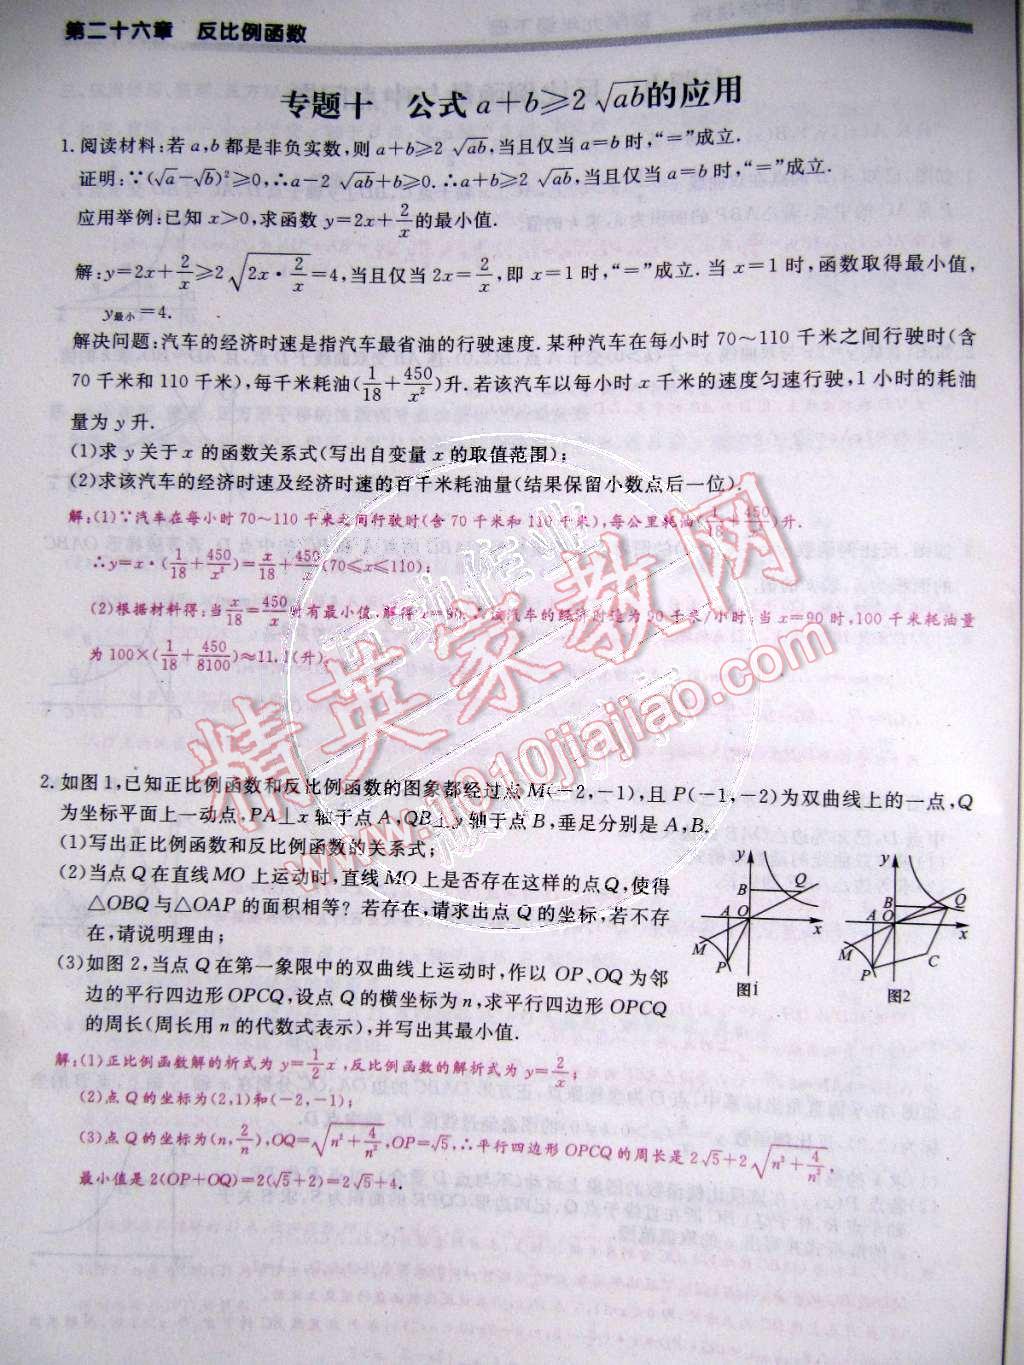 第二十六章 反比例函数
专题十 公式 a+b≥2√ab的应用
1. 阅读材料:若 a,b 都是非负实数,则 a+b≥2 √ab,当且仅当 a=b 时,“=”成立.
证明:∵(√a-√b)²≥0,∴a-2 √ab+b≥0.∴a+b≥2 √ab,当且仅当 a=b 时,“=”成立.
应用举例:已知 x>0,求函数 y=2x+2/x 的最小值.
解:y=2x+2/x≥2√(2x·2/x)=4,当且仅当 2x=2/x,即 x=1 时,“=”成立. 当 x=1 时,函数取得最小值,
y最小=4.
解决问题:汽车的经济时速是指汽车最省油的行驶速度. 某种汽车在每小时 70~110 千米之间行驶时(含
70 千米和 110 千米),每千米耗油(1/18+450/x²)升. 若该汽车以每小时 x 千米的速度匀速行驶,1 小时的耗油
量为 y 升.
(1)求 y 关于 x 的函数关系式(写出自变量 x 的取值范围);
(2)求该汽车的经济时速及经济时速的百千米耗油量(结果保留小数点后一位).
解:(1)∵汽车在每小时 70~110 千米之间行驶时(含 70 千米和 110 千米),每公里耗油(1/18+450/x²)升.
∴y=x·(1/18+450/x²)=x/18+450/x(70≤x≤110);
(2)根据材料得:当x/18=450/x时有最小值. 解得 x=90. ∴该汽车的经济时速为 90 千米/小时;当 x=90 时,100 千米耗油量
为 100×(1/18+450/8100)≈11.1(升).
2. 如图 1,已知正比例函数和反比例函数的图象都经过点 M(-2,-1),且 P(-1,-2)为双曲线上的一点,Q
为坐标平面上一动点,PA⊥x 轴于点 A,QB⊥y 轴于点 B,垂足分别是 A,B.
(1)写出正比例函数和反比例函数的关系式;
(2)当点 Q 在直线 MO 上运动时,直线 MO 上是否存在这样的点 Q,使得
△OBQ 与△OAP 的面积相等?若存在,请求出点 Q 的坐标,若不存
在,请说明理由;
(3)如图 2,当点 Q 在第一象限中的双曲线上运动时,作以 OP、OQ 为邻
边的平行四边形 OPCQ,设点 Q 的横坐标为 n,求平行四边形 OPCQ
的周长(周长用 n 的代数式表示),并写出其最小值.
y B Q A O x M P 图1
y B Q A O x M P C 图2
解:(1)正比例函数解的析式为 y=1/2x,反比例函数的解析式为 y=2/x;
(2)点 Q 的坐标为(2,1)和(-2,-1);
(3)点 Q 的坐标为(n,2/n),OQ=√(n²+4/n²),OP=√5,∴平行四边形 OPCQ 的周长是 2√5+2√(n²+4/n²),
最小值是 2(OP+OQ)=2(√5+2)=2√5+4.
精英家教网
www.1010jiajiao.com